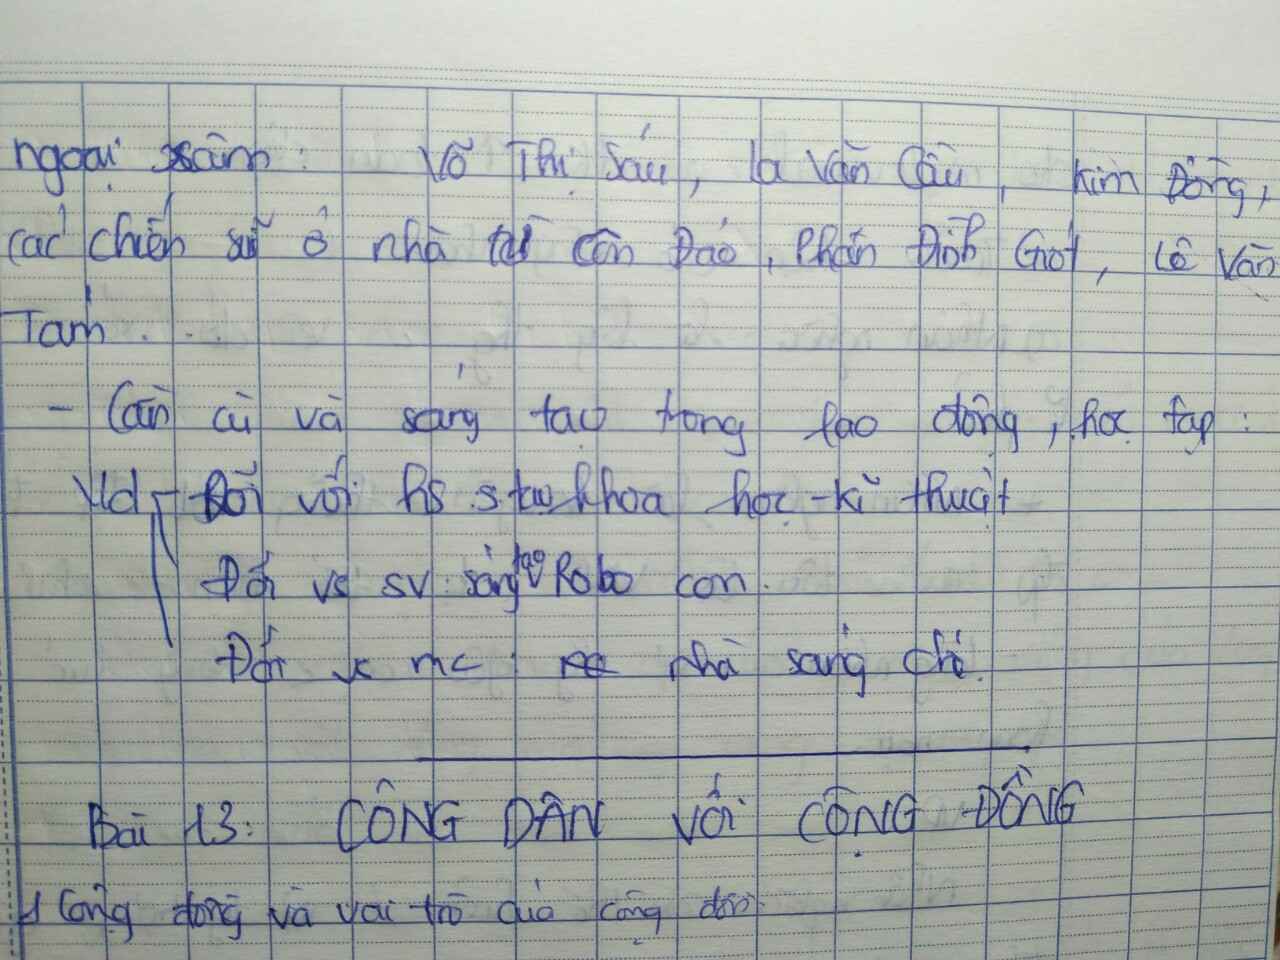 ngoại xâm: Võ Thị Sáu, La Văn Cầu, Kim Đồng,
các chiến sĩ ở nhà tù Côn Đảo, Phan Đình Giót, Lê Văn
Tám...
- Cần cù và sáng tạo trong lao động, học tập:
Vd - Đối với hs: s tạo khoa học - kĩ thuật
Đối vs sv: sáng tạo Robo con.
Đối vs mc: nhà sáng chế.
Bài 13: CÔNG DÂN VỚI CỘNG ĐỒNG
1 Cộng đồng và vai trò của cộng đồn